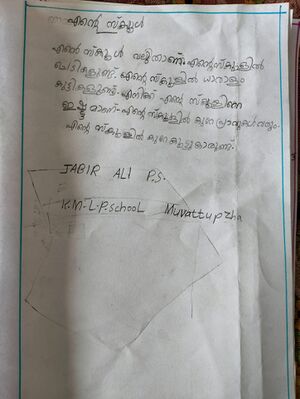 എന്റെ സ്കൂൾ
എന്റെ സ്കൂൾ വലുതാണ്. എന്റെ സ്കൂളിൽ
ചെടികളുണ്ട്. എന്റെ സ്കൂളിൽ ധാരാളം
കുട്ടികളുണ്ട്. എനിക്ക് എന്റെ സ്കൂളിനെ
ഇഷ്ടമാണ്. എന്റെ സ്കൂളിൽ കുറേ പ്രാവുകൾ വരും.
എന്റെ സ്കൂളിൽ കുറേ കൂട്ടുകാരുണ്ട്.
JABIR ALI P.S.
K.M-L.P.SchooL Muvattupzha